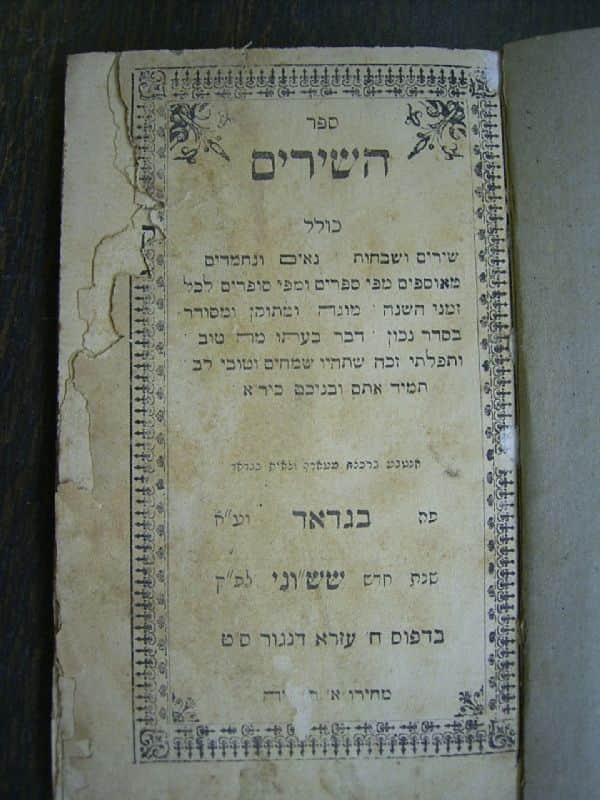 ספר
השירים
כולל
שירים ושבחות נאים ונחמדים
מאוספים מפי ספרים ומפי סופרים לכל
זמני השנה מוגה ומתוקן ומסודר
בסדר נכון דבר בעתו מה טוב
ותפלתי זכה שתהיו שמחים וטובי לב
תמיד אתם ובניכם כיר״א
ברכצת מעארף ולאית בגדאד
פה בגדאד יע״א
שנת חדש שש״וני לפ״ק
בדפוס ח׳ עזרא דנגור ס״ט
מחירו א׳